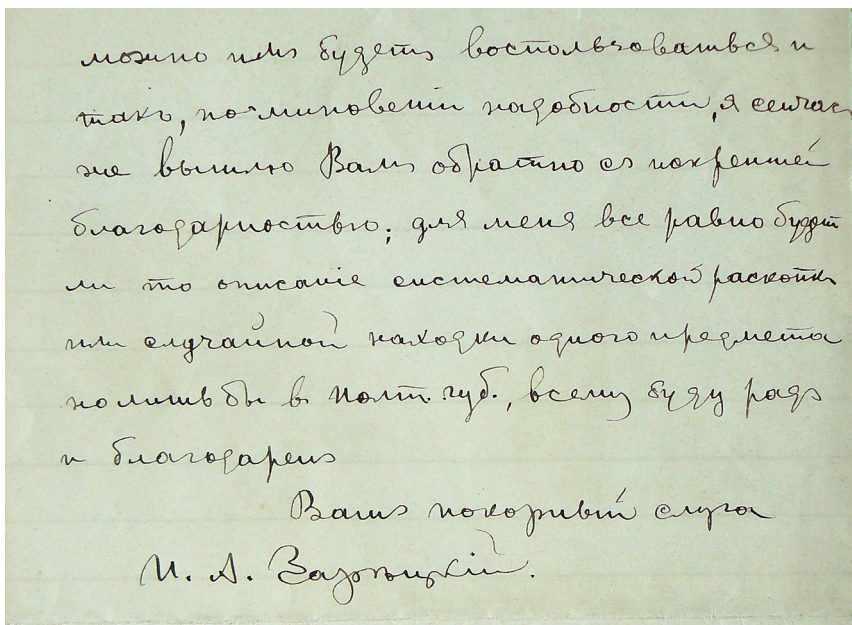 можно имъ будетъ воспользоваться и
такъ, по миновеніи надобности, я сейчас
же вышлю Вамъ обратно съ искренней
благодарностью; для меня все равно будет
ли то описаніе систематической раскопки
или случайной находки одного предмета
но лишь бы в Полт. губ., всему буду радъ
и благодаренъ
Вашъ покорный слуга
И. А. Зарѣцкій.